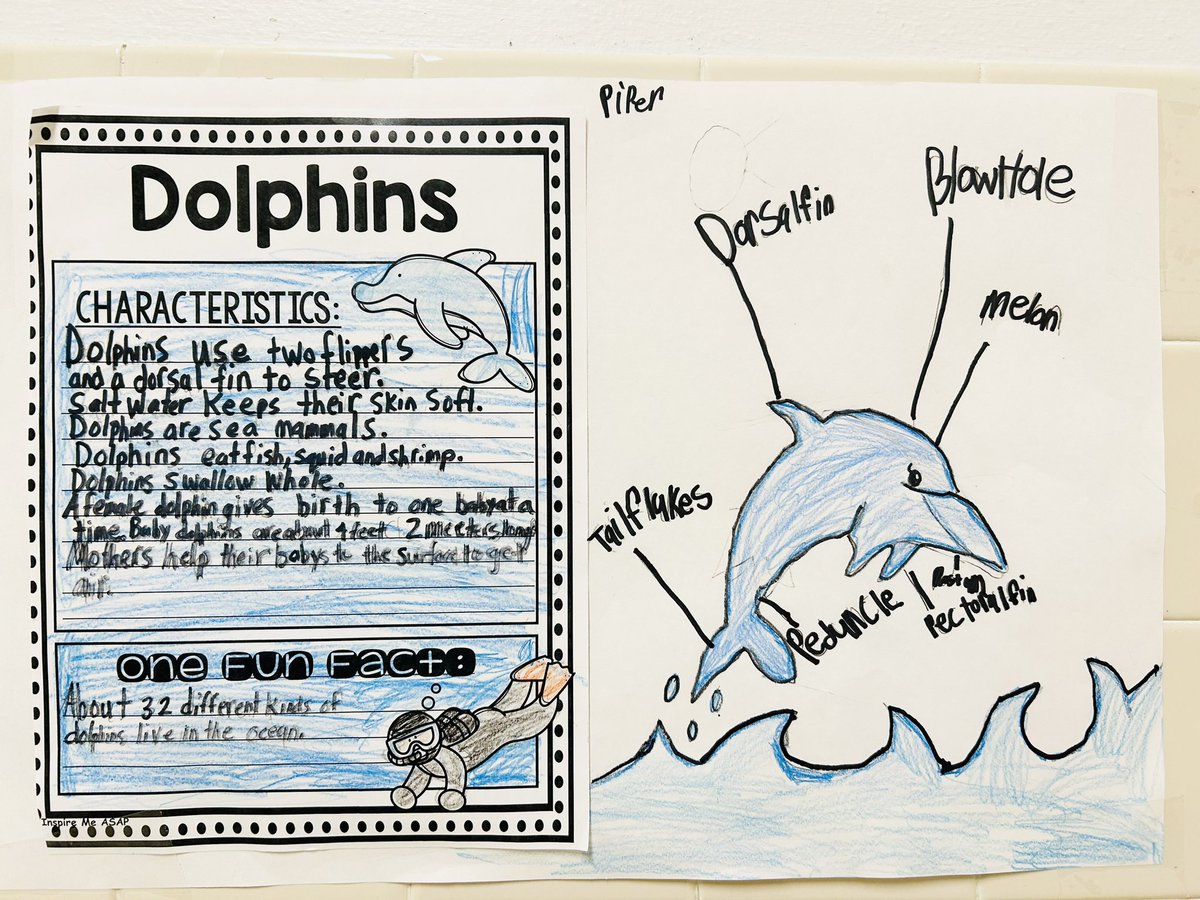 Dolphins
CHARACTERISTICS:
Dolphins use two flippers
and a dorsal fin to steer.
Salt water keeps their skin soft.
Dolphins are sea mammals.
Dolphins eat fish, squid and shrimp.
Dolphins swallow whole.
A female dolphin gives birth to one baby at a
time. Baby dolphins are about 4 feet 2 meeters long
Mothers help their babys to the surface to get
air.
One Fun Fact:
About 32 different kinds of
dolphins live in the ocean.
Inspire Me ASAP
Piper
Dorsal fin
BlowHole
melon
Tail flukes
Peduncle
Pectoral fin